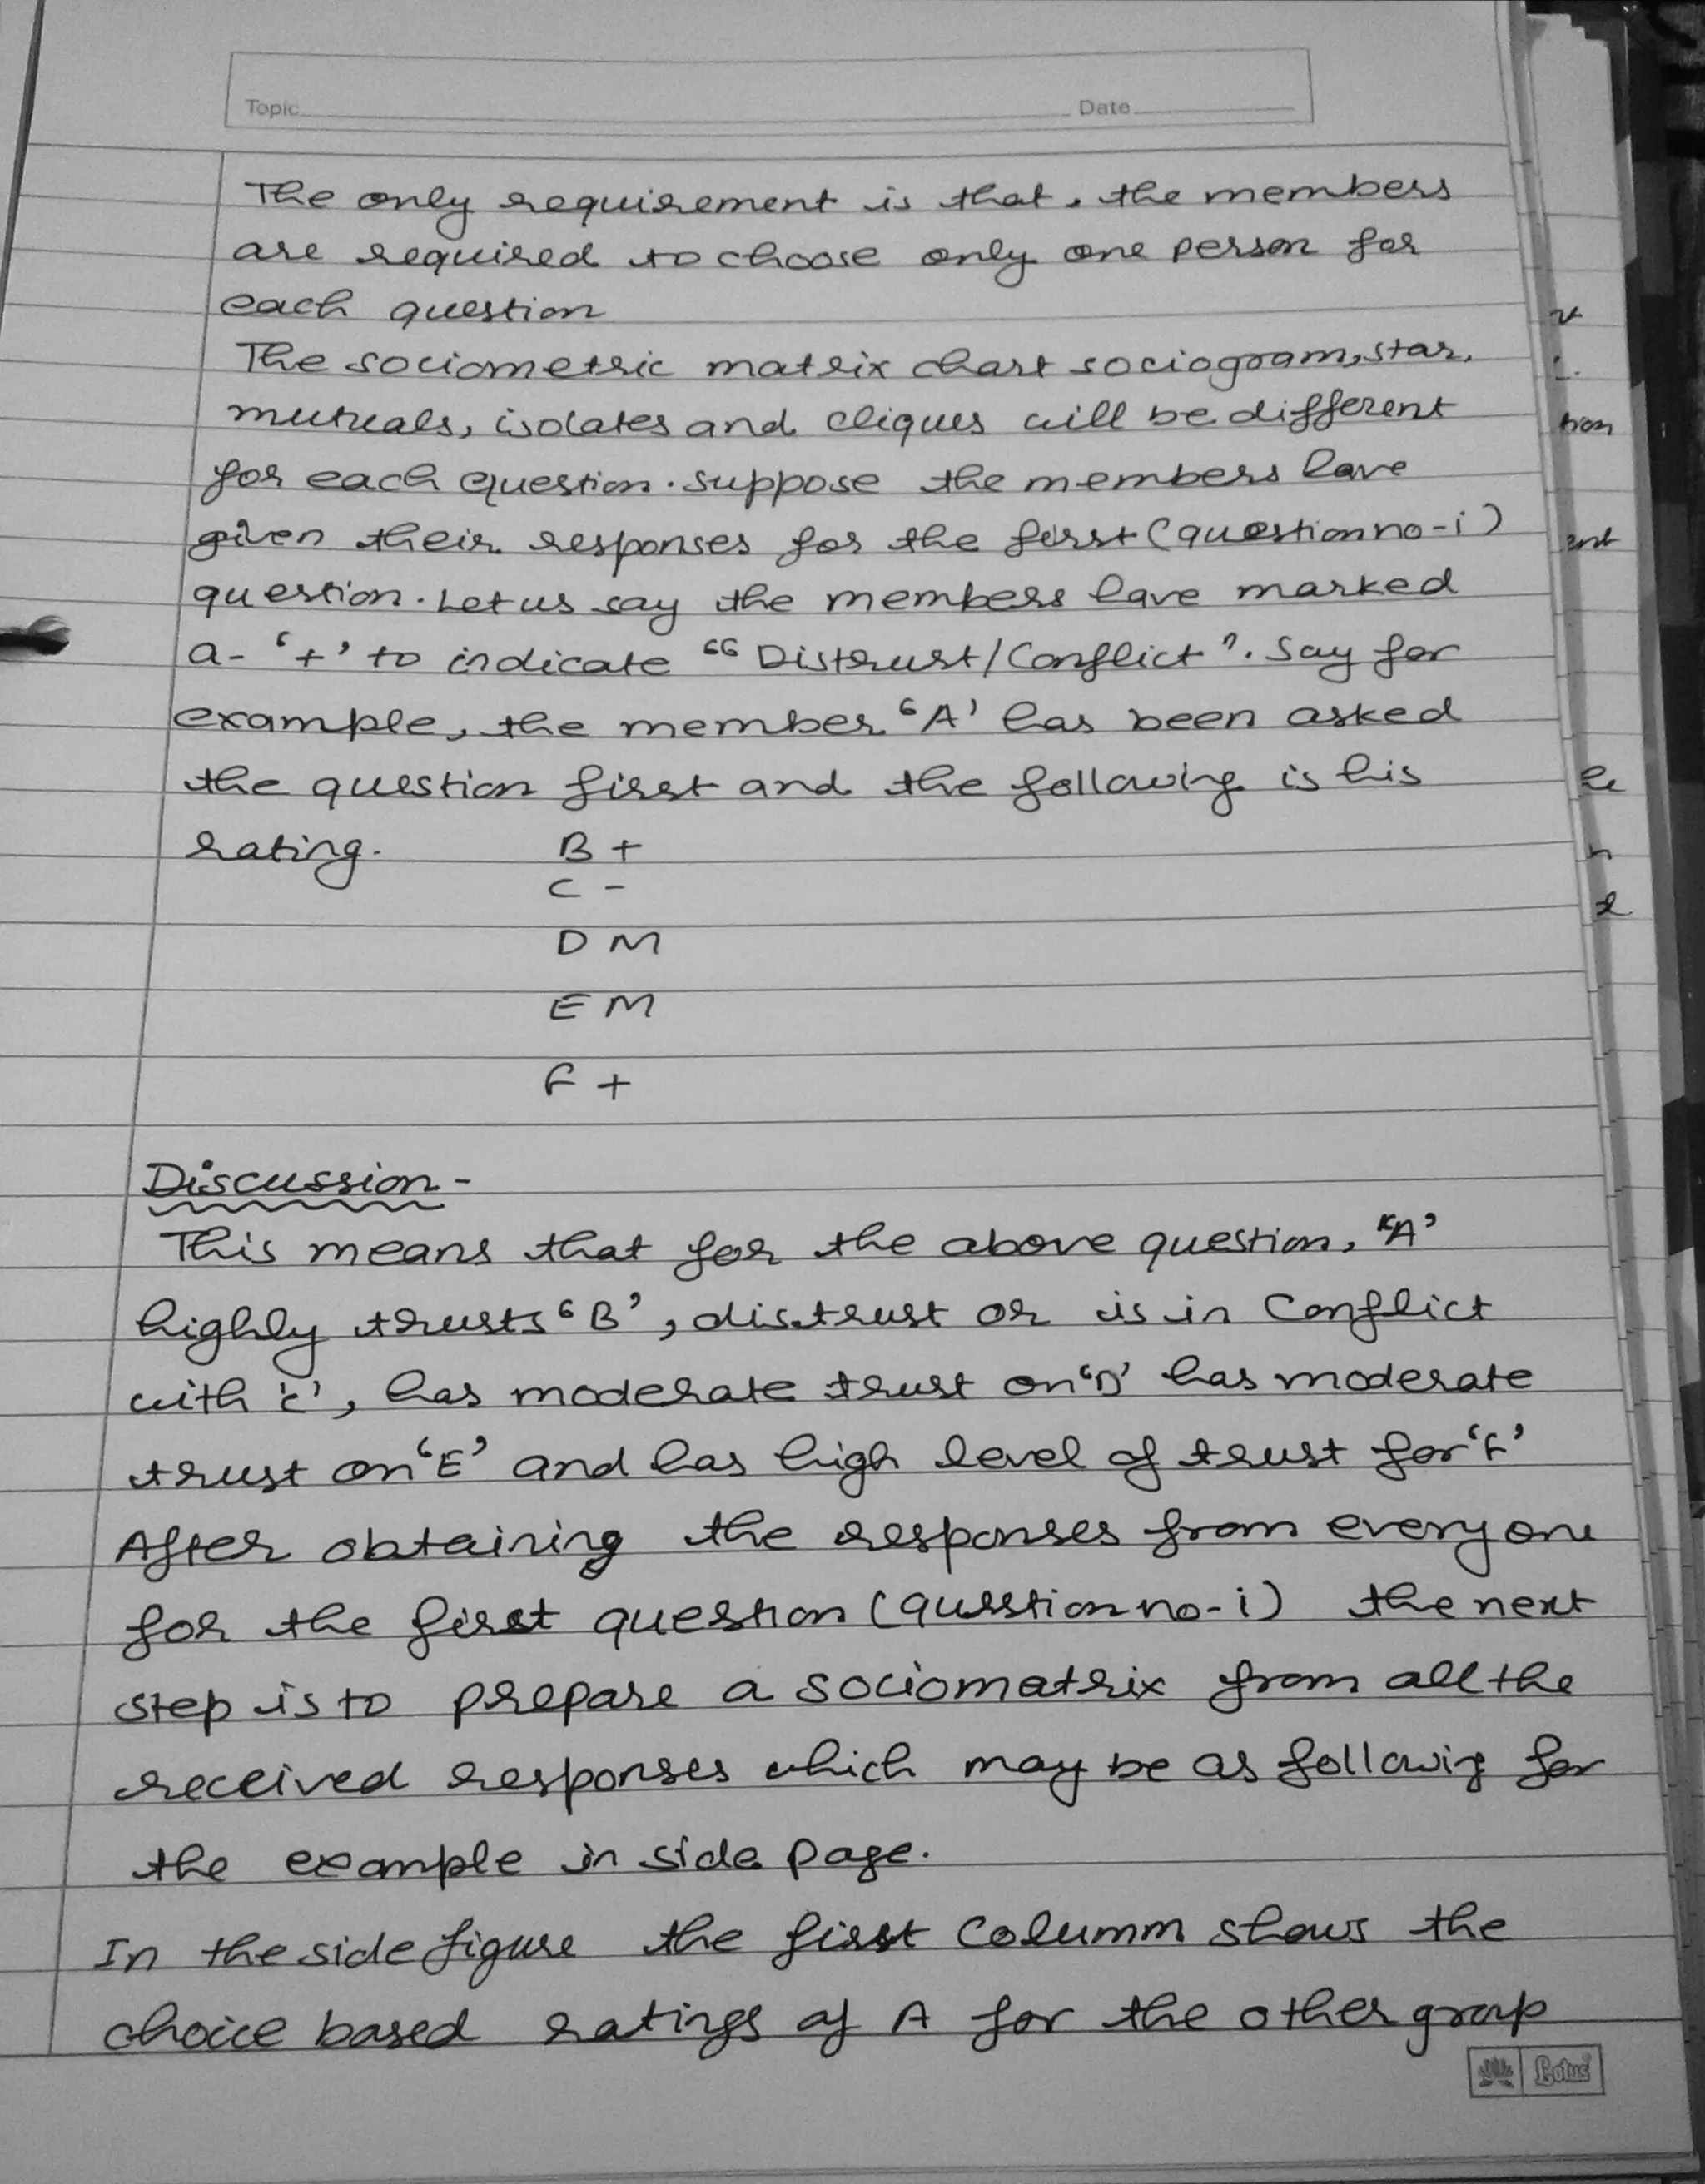 Topic Date
The only requirement is that, the members
are required to choose only one person for
each question
The sociometric matrix chart sociogram, star,
mutuals, isolates and cliques will be different
for each question. Suppose the members have
given their responses for the first (question no-i)
question. Let us say the members have marked
a- '+' to indicate "Distrust/Conflict". Say for
example, the member 'A' has been asked
the question first and the following is his
rating. B +
C -
D M
E M
F +
Discussion -
This means that for the above question, 'A'
highly trusts 'B', distrust or is in Conflict
with 'C', has moderate trust on 'D' has moderate
trust on 'E' and has high level of trust for 'F'
After obtaining the responses from everyone
for the first question (question no-i) the next
step is to prepare a sociomatrix from all the
received responses which may be as followig for
the example in side page.
In the side figure the first Columm shows the
choice based ratings of A for the other group
Lotus